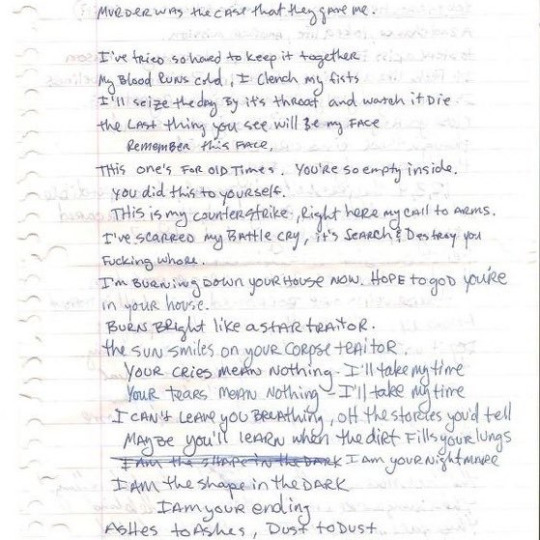 MURDER WAS the CASE that they gave me.
I've tried so hard to keep it together
My Blood Runs cold, I Clench my fists
I'll seize the day By it's throat and watch it Die
the LAST thing you see will Be my FACE
Remember this FACE,
THIS one's FOR OLD Times, You're so empty inside.
You did this to yourself.
This is my counterstrike, Right here my CAll to ARMS.
I've scarred my BAttle cry, it's SEARCH & Destroy you
Fucking whore.
I'm BURNING DOWN YOUR HOUSE NOW. HOPE to GOD you're
in your house.
BURN BRight like a STAR TRAITOR.
the SUN SMiles on YOUR CORPSE TRAITOR.
YOUR CRIES MEAN NOTHING - I'll take my time
YOUR TEARS MEAN NOTHING - I'll take my time
I CAN'T LEAVE YOU BREATHING, Oh the stories you'd tell
MAYBE You'll LEARN when the DIRT Fills your lungs
I AM the SHAPE in the DARK I Am your Nightmare
I AM the shape in the DARK
I Am your ending
Ashes to Ashes, Dust to Dust